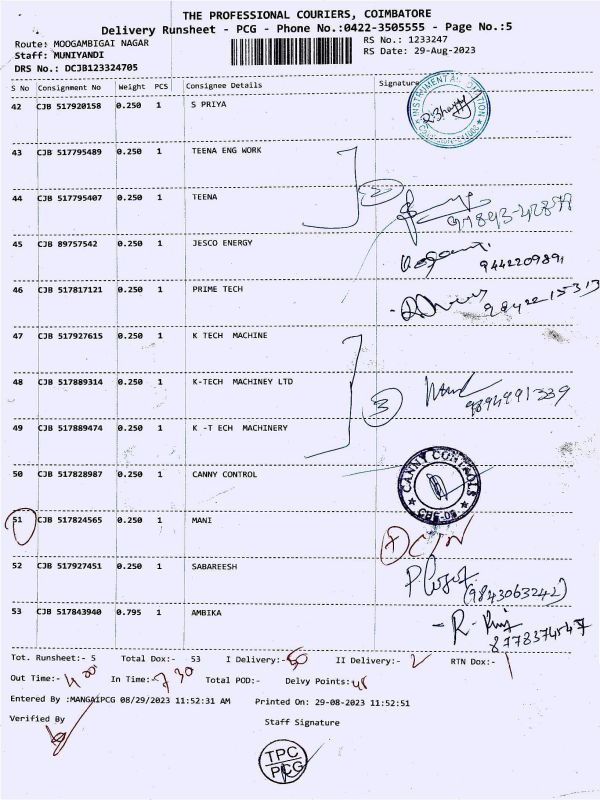 THE PROFESSIONAL COURIERS, COIMBATORE
Delivery Runsheet - PCG - Phone No.:0422-3505555 - Page No.:5
Route: MOOGAMBIGAI NAGAR
RS No.: 1233247
Staff: MUNIYANDI
RS Date: 29-Aug-2023
DRS No.: DCJB123324705
S No Consignment No Weight PCS Consignee Details Signature
42 CJB 517920158 0.250 1 S PRIYA
43 CJB 517795489 0.250 1 TEENA ENG WORK
2
44 CJB 517795407 0.250 1 TEENA
97893-42877
45 CJB 89757542 0.250 1 JESCO ENERGY
9442209891
46 CJB 517817121 0.250 1 PRIME TECH
98422-15313
47 CJB 517927615 0.250 1 K TECH MACHINE
48 CJB 517889314 0.250 1 K-TECH MACHINEY LTD
3
9894991339
49 CJB 517889474 0.250 1 K -T ECH MACHINERY
50 CJB 517828987 0.250 1 CANNY CONTROL
CANNY CONTROLS
51 CJB 517824565 0.250 1 MANI
52 CJB 517927451 0.250 1 SABAREESH
(9843063242)
53 CJB 517843940 0.795 1 AMBIKA
8778374547
Tot. Runsheet:- 5 Total Dox:- 53 I Delivery:- 50 II Delivery:- 2 RTN Dox:- 1
Out Time:- 4 00 In Time:- 7 30 Total POD:- Delvy Points:- 48
Entered By :MANGAIPCG 08/29/2023 11:52:31 AM Printed On: 29-08-2023 11:52:51
Verified By Staff Signature
TPC
PCG